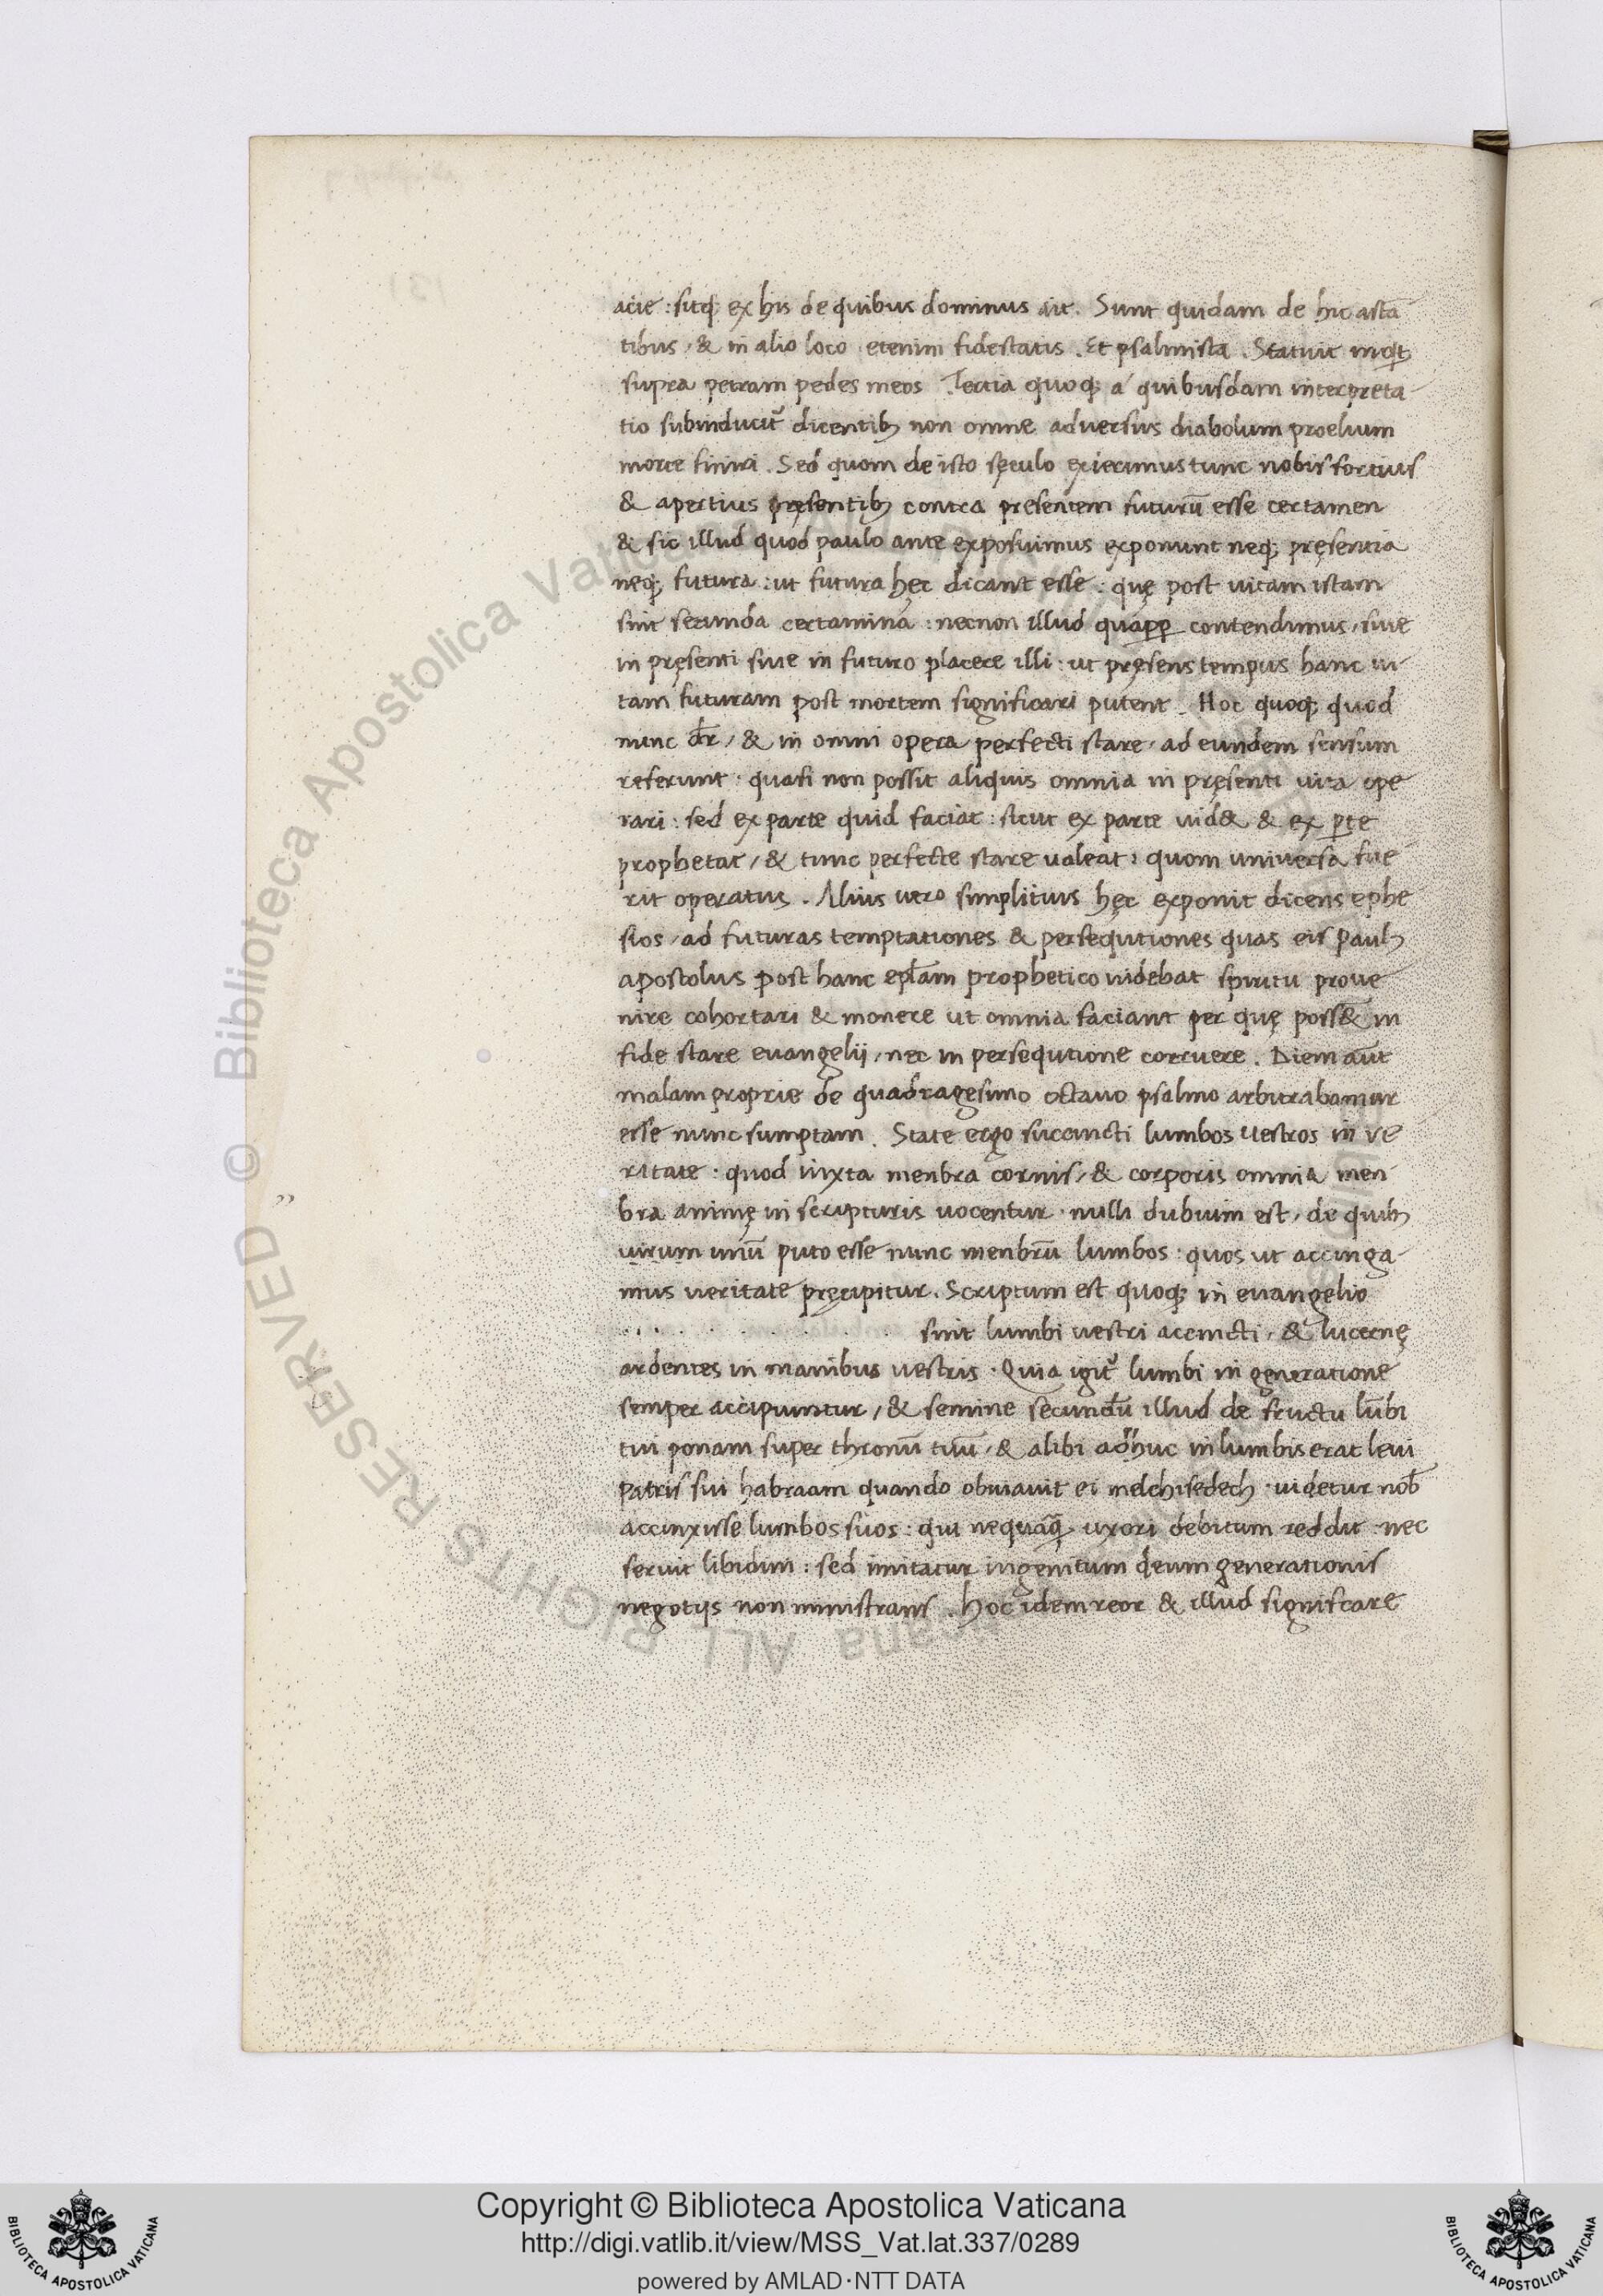 acie : sitq; ex his de quibus dominus ait. Sunt quidam de hic astā
tibus, & in alio loco etenim fidestatis. Et psalmista. Statuit inqt
supra petram pedes meos. Tertia quoq; á quibusdam interpreta
tio subinducit᷑ dicentibꝫ non omne adversus diabolum proelium
morte finiri. Sed quom de isto sęculo exierimus tunc nobis fortius
& apertius pręsentibꝫ contra presentem futurū esse certamen
& sic illud quod paulo ante exposuimus exponunt neq; pręsentia
neq; futura : ut futura hęc dicant esse : quę post vitam istam
sint secunda certamina : necnon illud quapp contendimus, sive
in pręsenti sive in futuro placere illi : ut pręsens tempus hanc vi
tam futuram post mortem significari putent. Hoc quoq; quod
nunc dr̄, & in omni opera perfecti stare, ad eundem sensum
referunt · quasi non possit aliquis omnia in pręsenti vita ope
rari : sed ex parte quid faciat : sicut ex parte vid& & ex ꝑte
prophetat, & tunc perfecte stare valeat : quom universa fue
rit operatus. Alius vero simplicius hęc exponit dicens ephe
sios, ad futuras temptationes & persequtiones quas eis paulꝫ
apostolus post hanc epl̄am prophetico videbat spiritu prove
nire cohortari & monere ut omnia faciant per quę possē& in
fide stare evangelij, nec in persequtione corruere. Diem aūt
malam proprie de quadragesimo octavo psalmo arbitrabamur
esse nunc sumptam. State ergo succincti lumbos vestros in ve
ritate · quod iuxta menbra cornis, & corporis omnia men
bra animę in scripturis vocentur · nulli dubium est, de quibꝫ
virum unū puto esse nunc menbrū lumbos : quos ut accinga
mus veritate pręcipitur. Scriptum est quoq; in evangelio
. . . . . . . . . . . sint lumbi vestri accincti, & lucernę
ardentes in manibus vestris · Quia igit᷑ lumbi in generatione
semper accipiuntur, & semine secundū illud de fructu lūbi
tui ponam super thronū tuū, & alibi adhuc in lumbis erat levi
patris sui habraam quando obviavit ei melchisedech · videtur nob̄
accinxisse lumbos suos : qui nequāq; uxori debitum reddit nec
servit libidini : sed imitatur ingenitum deum generationis
negotijs non ministrans. Hoc idem reor & illud significare
Copyright © Biblioteca Apostolica Vaticana
http://digi.vatlib.it/view/MSS_Vat.lat.337/0289
powered by AMLAD·NTT DATA